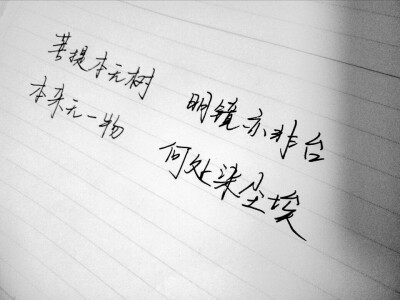 菩提本无树 明镜亦非台
本来无一物 何处染尘埃